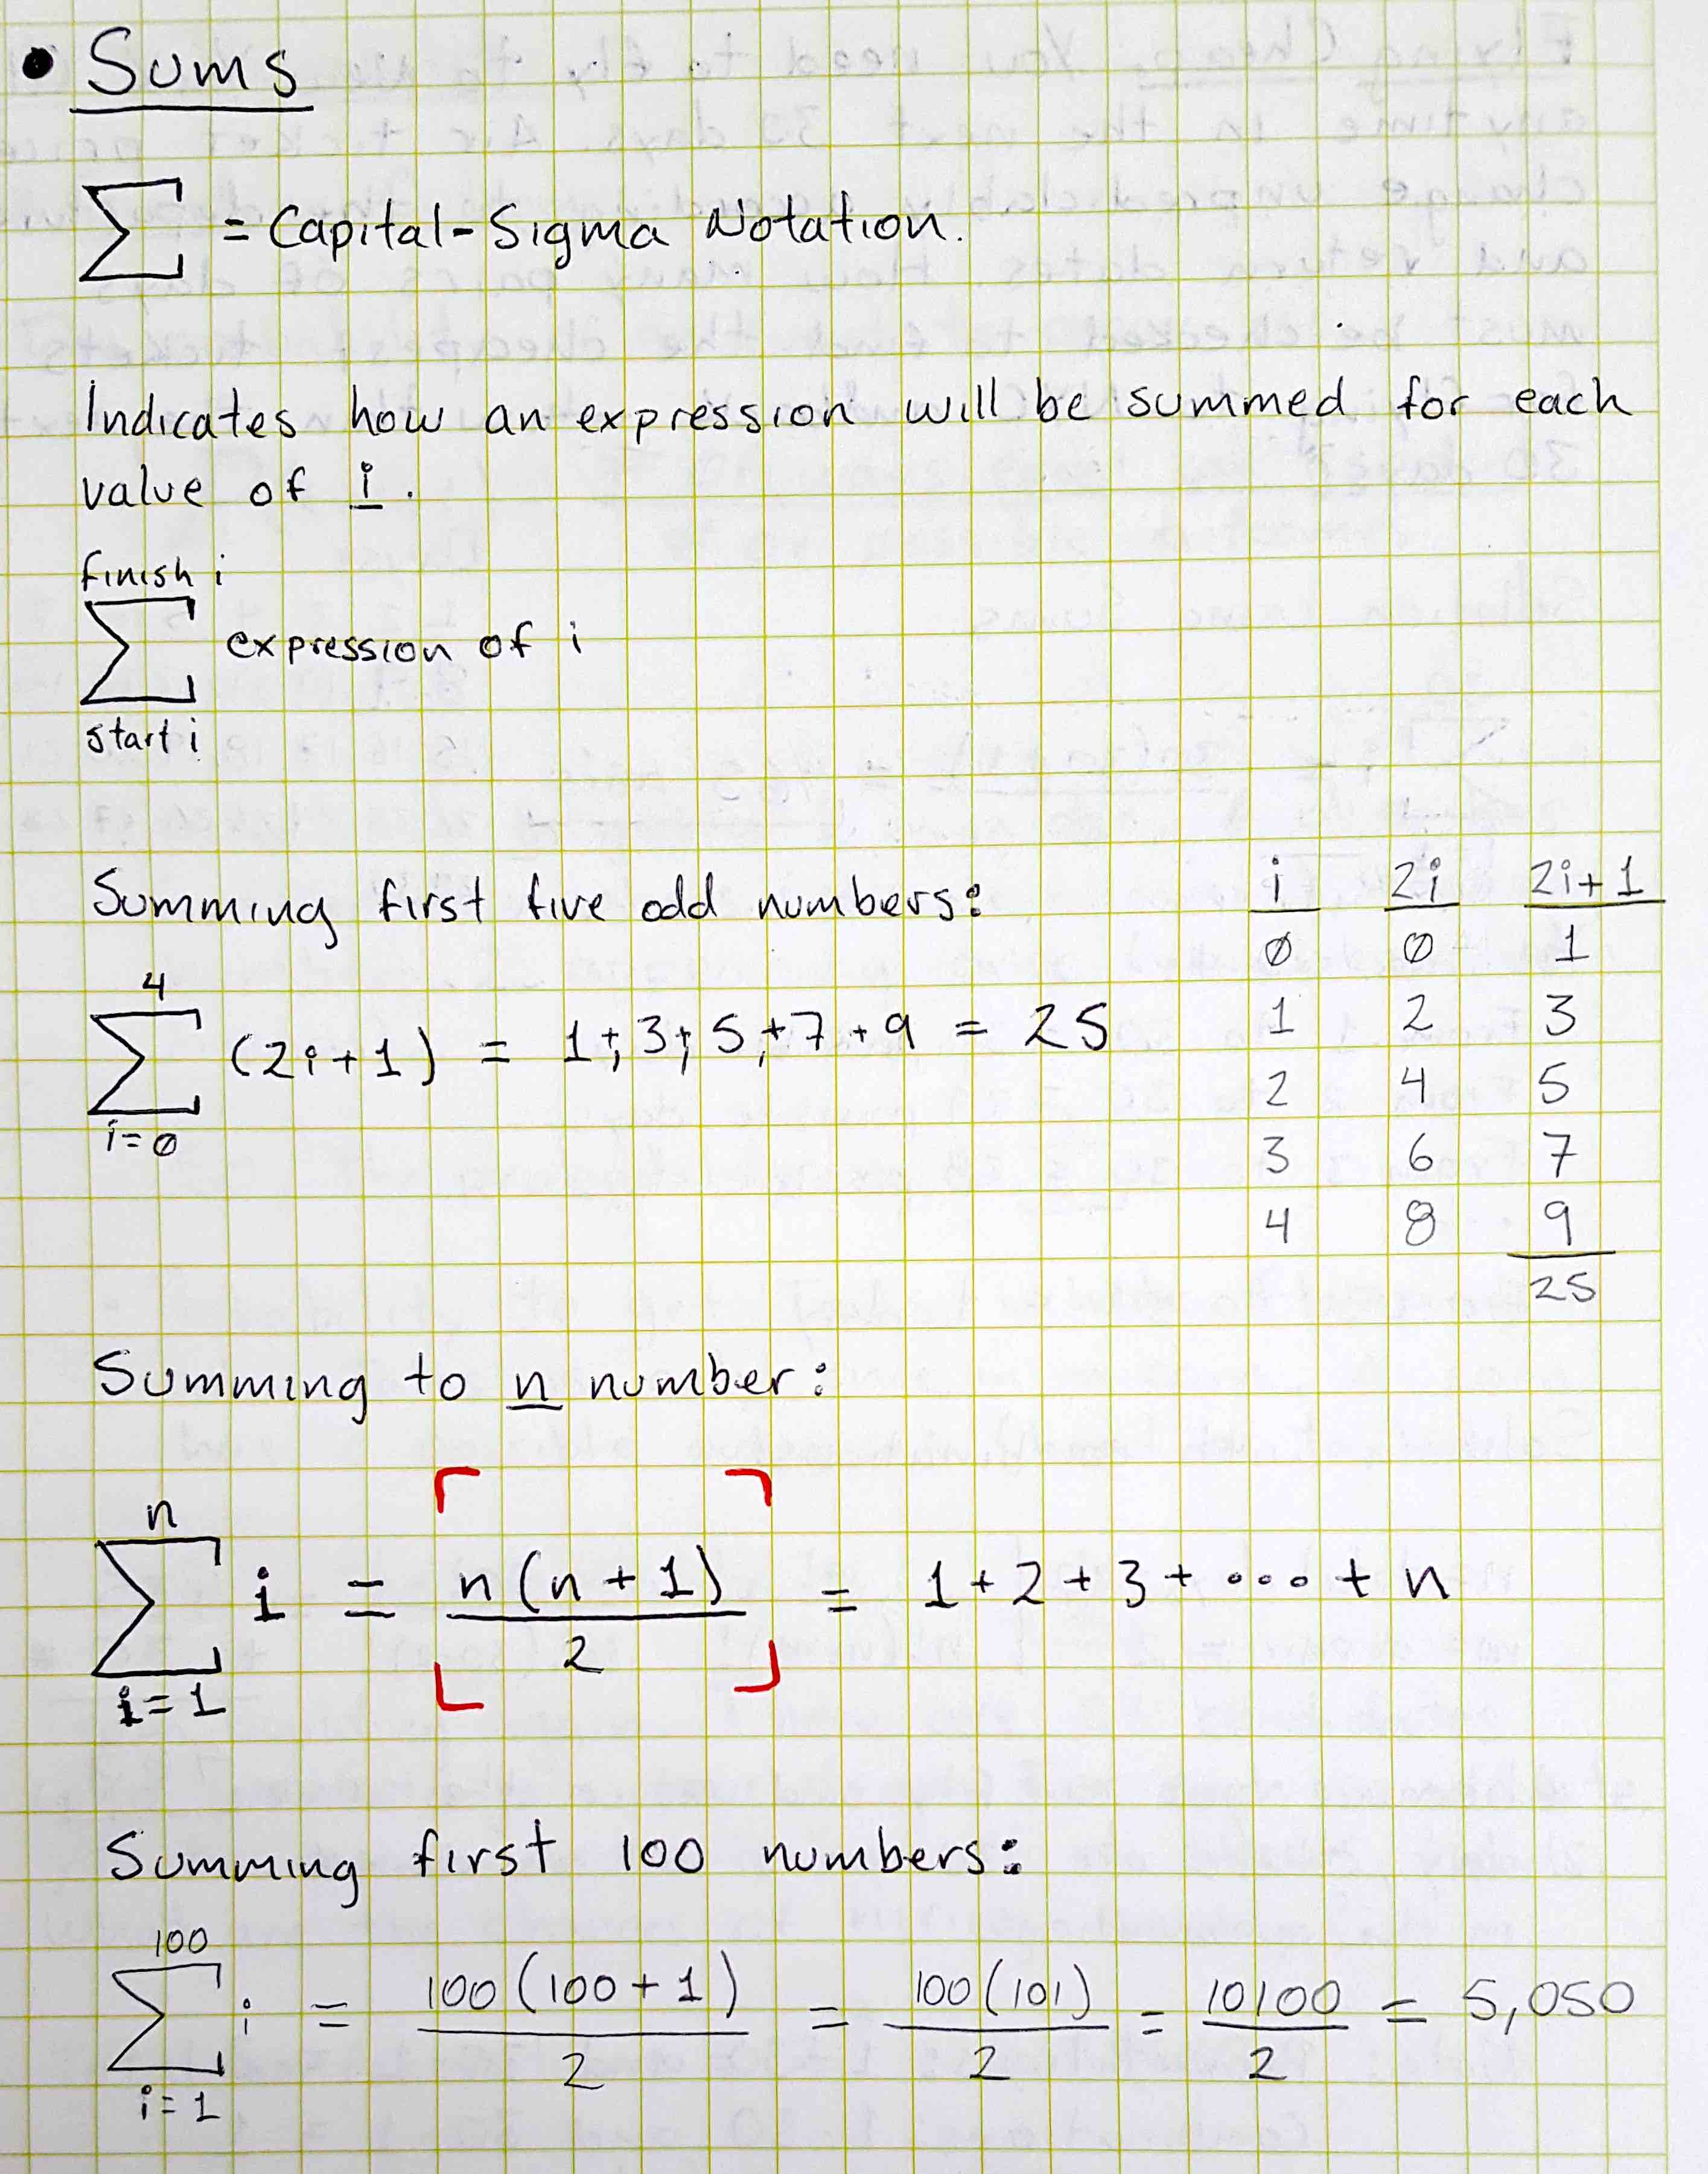 • Sums
∑ = Capital-Sigma Notation.
Indicates how an expression will be summed for each
value of i.
finish i
∑ expression of i
start i
Summing first five odd numbers:
4
∑ (2i+1) = 1+3+5+7+9 = 25
i=0
i 2i 2i+1
0 0 1
1 2 3
2 4 5
3 6 7
4 8 9
25
Summing to n number:
n
∑ i = n(n+1)/2 = 1+2+3+...+n
i=1
Summing first 100 numbers:
100
∑ i = 100(100+1)/2 = 100(101)/2 = 10100/2 = 5,050
i=1